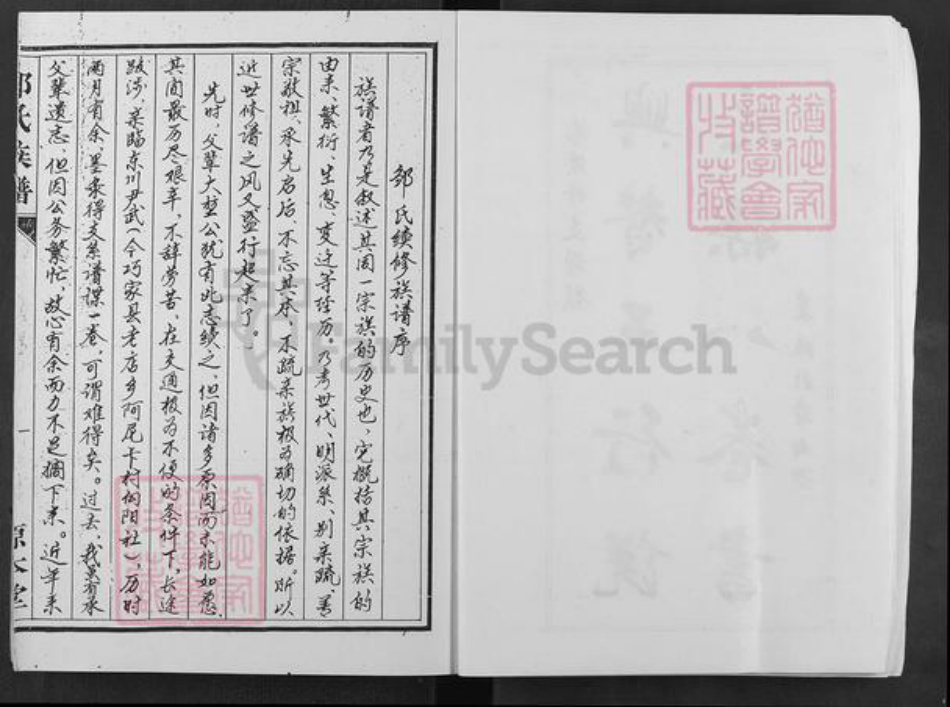 邹氏续修族谱序
族谱者乃是叙述其同一宗族的历史也，它概括其宗族的
由来、繁衍、生息、变迁等经历。乃考世代、明派系、别亲疏、尊
宗敬祖、承先启后、不忘其本、不疏亲族极为确切的依据。所以
近世修谱之风又盛行起来了。
先时，父辈大堃公就有此志续之，但因诸多原因而未能如愿，
其间最历尽艰辛，不辞劳苦，在交通极为不便的条件下，长途
跋涉，亲临东川尹武（今巧家县老店乡阿尼卡村向阳社），历时
两月有余，墨录得支系谱谍一卷，可谓难得矣。过去，我虽有承
父辈遗志，但因公务繁忙，故心有余而力不足搁下来。近年来
氏族谱
一
FamilySearch
猶他家
譜學會
收藏
猶他家
譜學會
收藏